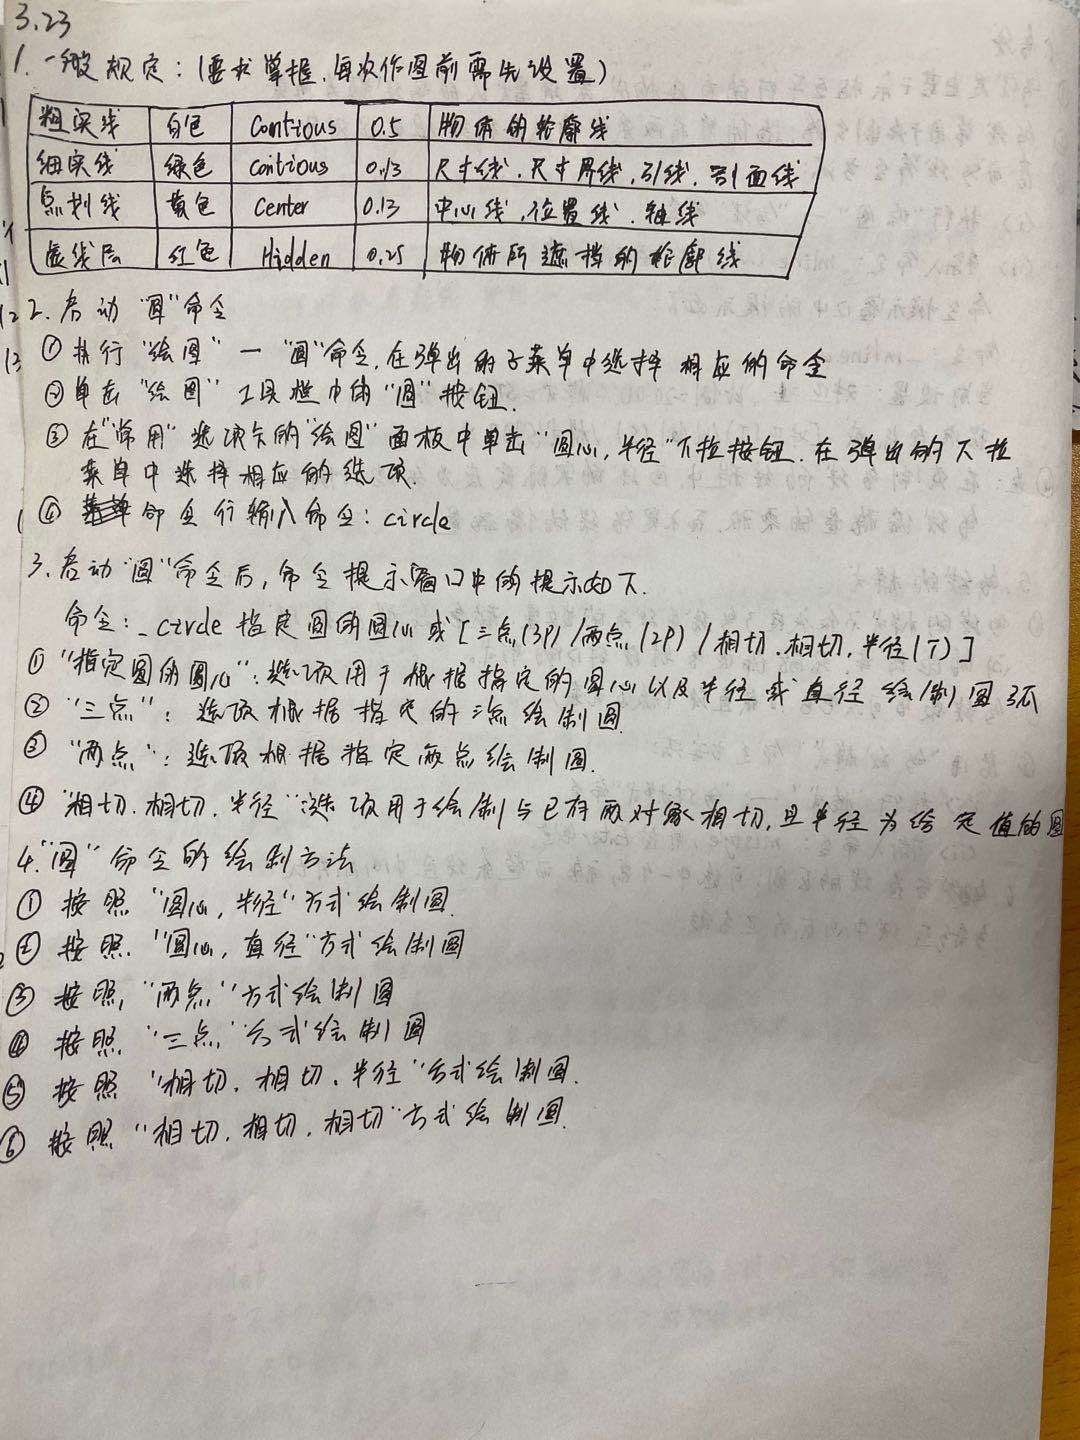 3.23
1. 一般规定：（要求掌握.每次作图前需先设置）
粗实线 白色 Contious 0.5 物体的轮廓线
细实线 绿色 Contious 0.13 尺寸线、尺寸界线、引线、剖面线
点划线 黄色 Center 0.13 中心线、位置线、轴线
虚线层 红色 Hidden 0.25 物体所遮挡的轮廓线
2. 启动“圆”命令
① 执行“绘图”一“圆”命令,在弹出的子菜单中选择相应的命令
② 单击“绘图”工具栏中的“圆”按钮.
③ 在“常用”选项卡的“绘图”面板中单击“圆心,半径”下拉按钮.在弹出的下拉
菜单中选择相应的选项.
④ 命令行输入命令：circle
3. 启动“圆”命令后,命令提示窗口中的提示如下.
命令：_circle 指定圆的圆心或[三点(3P)/两点(2P)/相切.相切.半径(T)]
① “指定圆的圆心”：选项用于根据指定的圆心以及半径或直径绘制圆弧
② “三点”：选项根据指定的三点绘制圆.
③ “两点”：选项根据指定两点绘制圆.
④ “相切.相切.半径”:选项用于绘制与已存两对象相切,且半径为给定值的圆
4. “圆”命令的绘制方法
① 按照“圆心,半径”方式绘制圆.
② 按照“圆心,直径”方式绘制圆
③ 按照“两点”方式绘制圆
④ 按照“三点”方式绘制圆
⑤ 按照“相切.相切.半径”方式绘制圆.
⑥ 按照“相切.相切.相切”方式绘制圆.